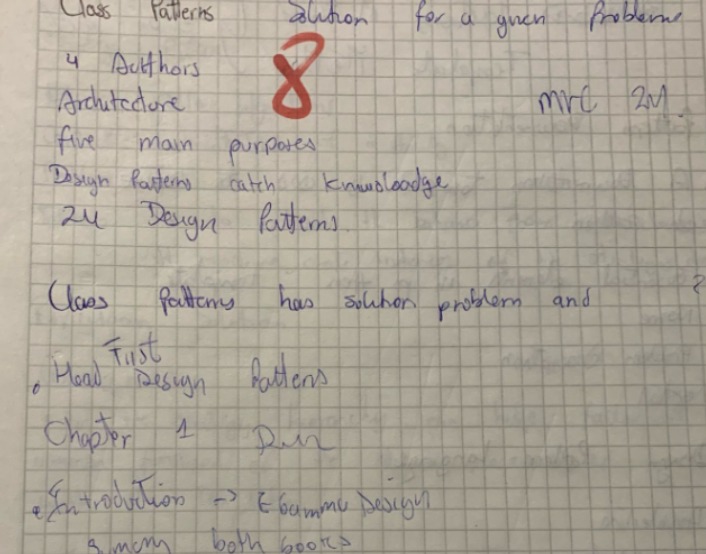 Class Patterns Solution for a given Problem
4 Authors 8
Architecture mrc 24.
five main purposes
Design Patterns catch Knwoloadge
24 Design Patterns.
Class patterns has solution problem and ?
First
. Head Design Pattens
Chapter 1 Run
. Introduction -> Egamma Design
both books